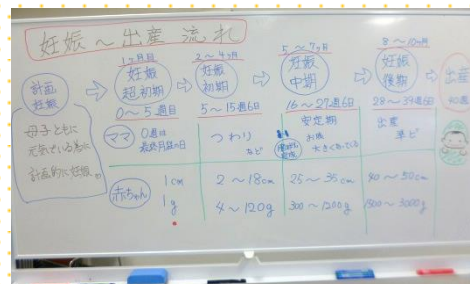 妊娠～出産 流れ
計画
妊娠
母子ともに
元気でいる為に
計画的に妊娠
1ヶ月目
妊娠
超初期
0～5週目
2～4ヶ月
妊娠
初期
5～15週6日
5～7ヶ月
妊娠
中期
16～27週6日
8～10ヶ月
妊娠
後期
28～39週6日
出産
40週
ママ
0週は
最終月経の日
つわり
など
安定期
お腹
大きくなっている
出産
準ビ
赤ちゃん
1cm
1g
2～18cm
4～120g
25～35cm
300～1200g
40～50cm
1500～3000g